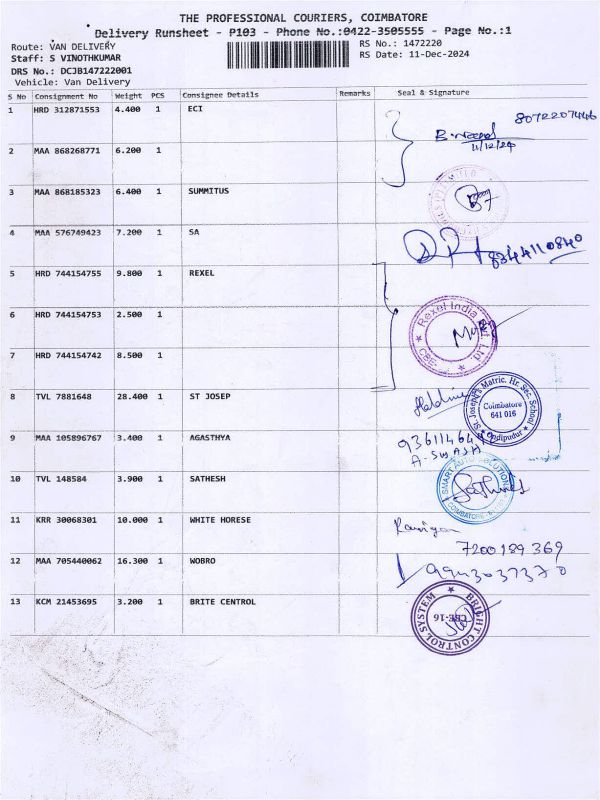 THE PROFESSIONAL COURIERS, COIMBATORE
Delivery Runsheet - P103 - Phone No.:0422-3505555 - Page No.:1
Route: VAN DELIVERY RS No.: 1472220
Staff: S VINOTHKUMAR RS Date: 11-Dec-2024
DRS No.: DCJB147222001
Vehicle: Van Delivery
S No Consignment No Weight PCS Consignee Details Remarks Seal & Signature
1 HRD 312871553 4.400 1 ECI
8072207446
11/12/24
2 MAA 868268771 6.200 1
3 MAA 868185323 6.400 1 SUMMITUS
4 MAA 576749423 7.200 1 SA
8344110840
5 HRD 744154755 9.800 1 REXEL
6 HRD 744154753 2.500 1
Rexel India Pvt. Ltd.
CBE
7 HRD 744154742 8.500 1
8 TVL 7881648 28.400 1 ST JOSEP
St. Joseph's Matric. Hr. Sec. School
Coimbatore
641 016
Ondipudur
9 MAA 105896767 3.400 1 AGASTHYA
A-SWASA
10 TVL 148584 3.900 1 SATHESH
SMART AUTO SOLUTION
COIMBATORE
Sathish
11 KRR 30068301 10.000 1 WHITE HORESE
7200189369
12 MAA 705440062 16.300 1 WOBRO
13 KCM 21453695 3.200 1 BRITE CENTROL
BRIGHT CONTROL SYSTEM
CBE-16